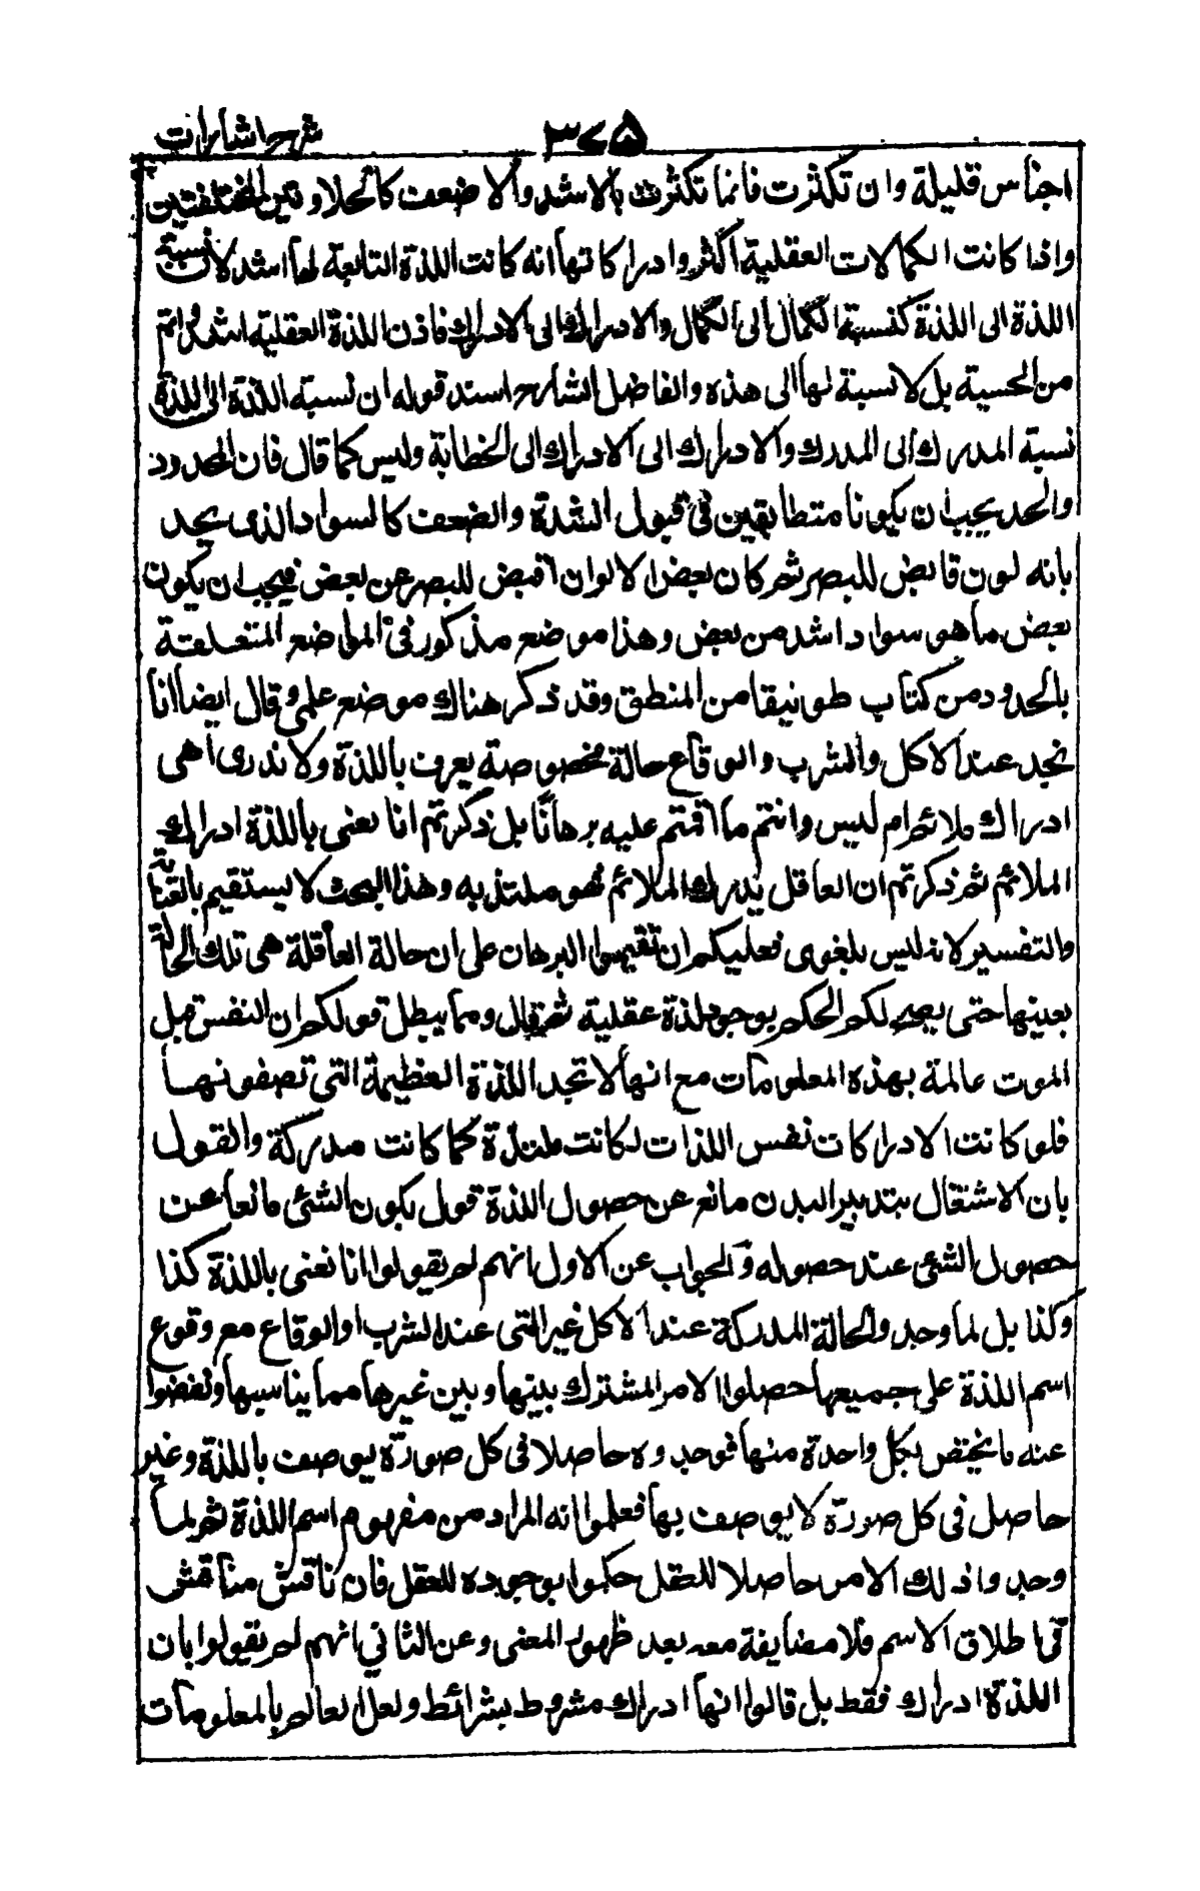 شرح اشارات
٣٧٥
اجناس قليلة وان تكثرت فانما تكثرت بالاشد والاضعف كالحلاوتين المختلفتين
واذا كانت الكمالات العقلية اكثر وادراكاتها اتم كانت اللذة التابعة لها اشد لان نسبة
اللذة الى اللذة كنسبة الكمال الى الكمال والادراك الى الادراك فاذن اللذة العقلية اشد واتم
من الحسية بل لا نسبة لها الى هذه والفاضل الشارح اسند قوله ان نسبة اللذة الى اللذة
نسبة المدرك الى المدرك والادراك الى الادراك الى الخطابة وليس كما قال فان المحدود
والحد يجب ان يكونا متطابقين فى قبول الشدة والضعف كالسواد الذى يحد
بانه لون قابض للبصر ثم كان بعض الالوان اقبض للبصر عن بعض فيجب ان يكون
بعض ما هو سواد اشد من بعض وهذا موضع مذكور فى المواضع المتعلقة
بالحدود من كتاب طونيقا من المنطق وقد ذكر هناك موضع علمى وقال ايضا انا
نجد عند الاكل والشرب والوقاع حالة مخصوصة يعرف باللذة ولا ندرى اهى
ادراك ملائم ام ليس وانتم ما اقمتم عليه برهانا بل ذكرتم انا نعنى باللذة ادراك
الملائم ثم ذكرتم ان العاقل يدرك الملائم فهو ملتذ به وهذا البحث لا يستقيم بالعناية
والتفسير لانه ليس بلغوى فعليكم ان تقيموا البرهان على ان حالة العاقلة هى تلك الحالة
بعينها حتى يصح لكم الحكم بوجود لذة عقلية ثم قال ومما يبطل قولكم ان النفس قبل
الموت عالمة بهذه المعلومات مع انها لا تجد اللذة العظيمة التى تصفونها
فلو كانت الادراكات نفس اللذات لكانت ملتذة كما كانت مدركة والقول
بان الاشتغال بتدبير البدن مانع عن حصول اللذة قول بكون الشئ مانعا عن
حصول الشئ عند حصوله والجواب عن الاول انهم لم يقولوا انا نعنى باللذة كذا
وكذا بل لما وجدوا الحالة المدركة عند الاكل غير التى عند الشرب او الوقاع مع وقوع
اسم اللذة على جميعها حصلوا الامر المشترك بينها وبين غيرها مما يناسبها ونفضوا
عنه ما يختص بكل واحدة منها فوجدوه حاصلا فى كل صورة يوصف باللذة وغير
حاصل فى كل صورة لا يوصف بها فعلموا انه المراد من مفهوم اسم اللذة ثم لما
وجدوا ذلك الامر حاصلا للعقل حكموا بوجوده للعقل فان ناقش مناقش
فى اطلاق الاسم فلا مضايقة معه بعد ظهور المعنى وعن الثانى انهم لم يقولوا بان
اللذة ادراك فقط بل قالوا انها ادراك مشروط بشرائط ولعل العالم بالمعلومات